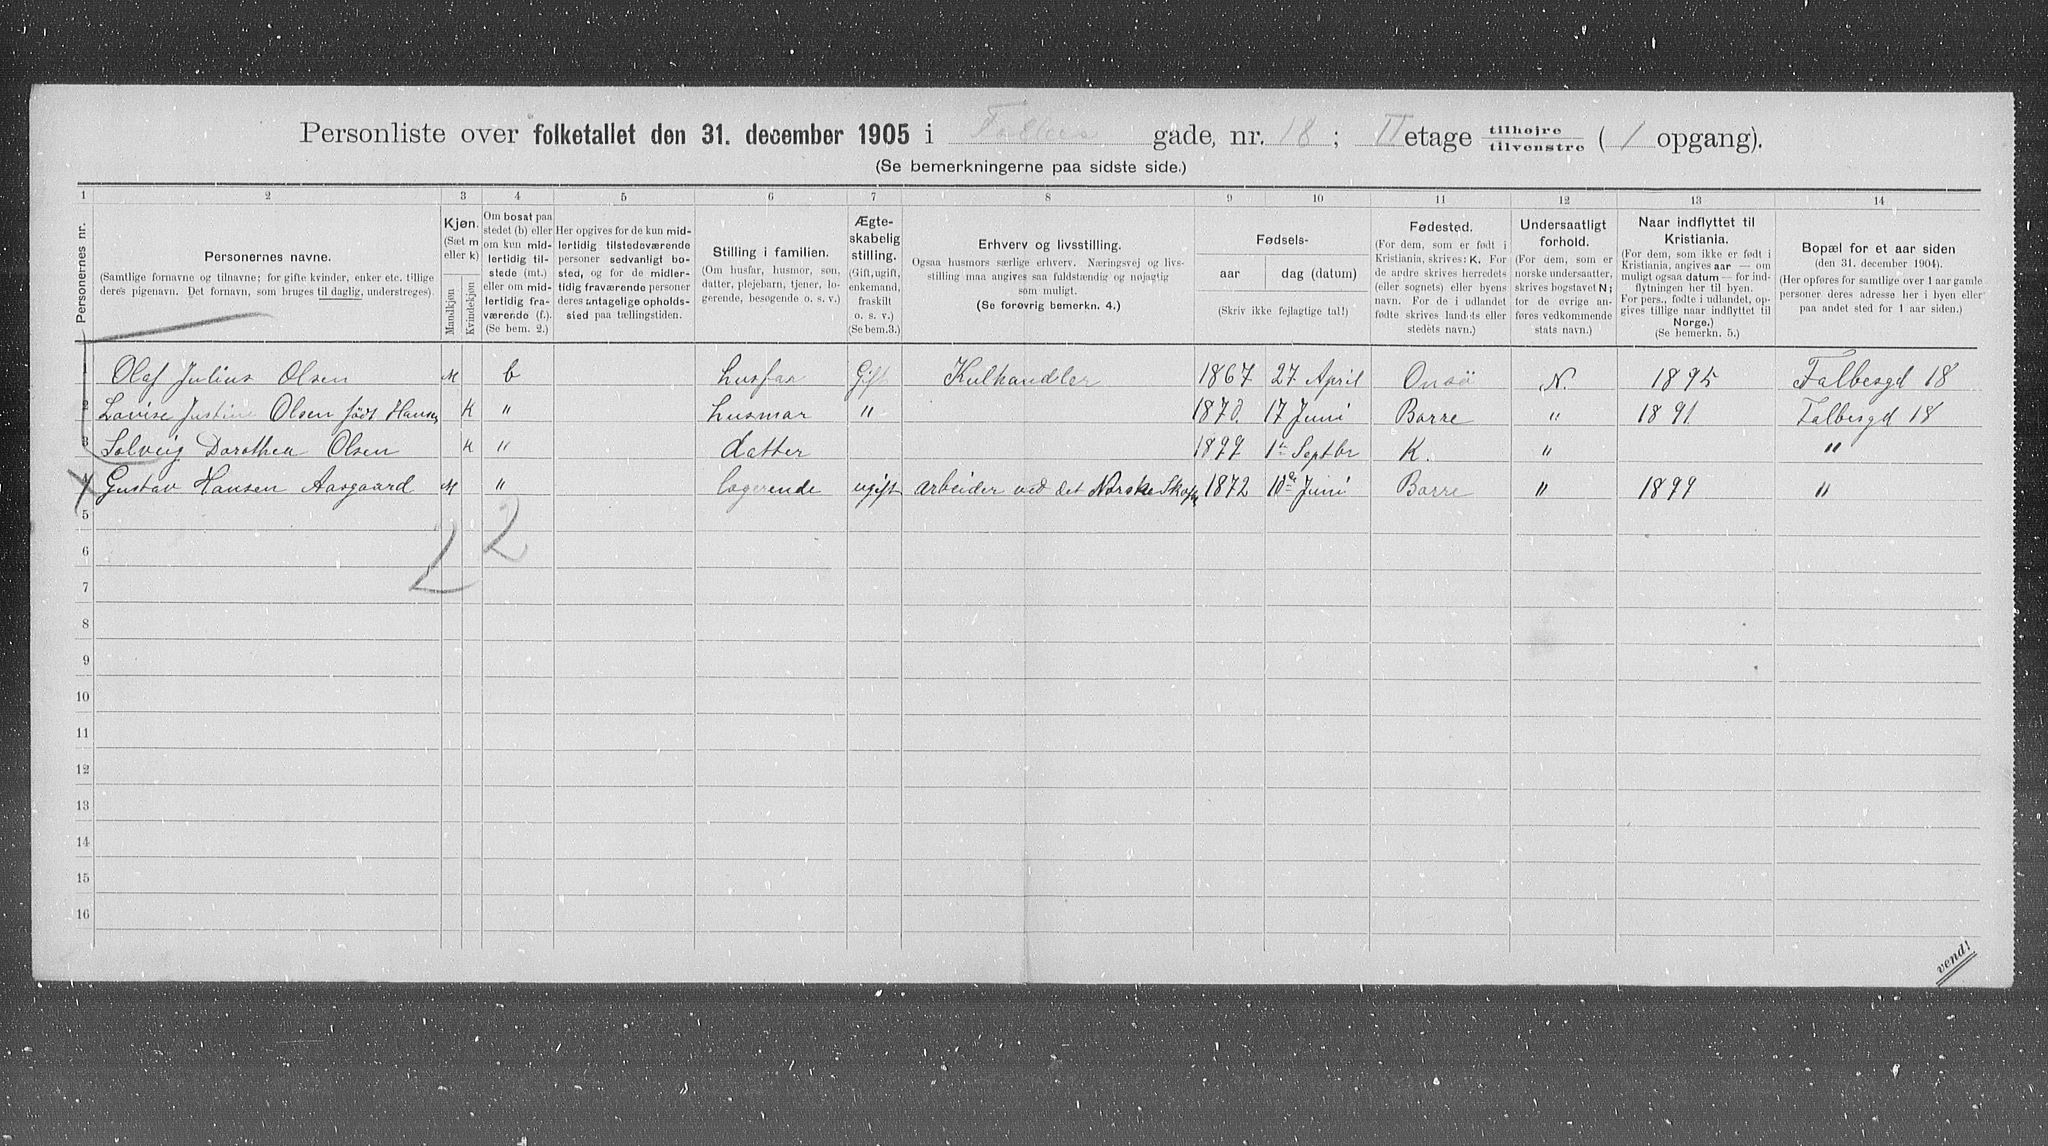 Personliste over folketallet den 31. december 1905 i Falbes gade, nr. 18 ; II etage tilhøjre tilvenstre ( 1 opgang).
(Se bemerkningerne paa sidste side.)
1 2 3 4 5 6 7 8 9 10 11 12 13 14
Personernes nr.
Personernes navne.
(Samtlige fornavne og tilnavne; for gifte kvinder, enker etc. tillige
deres pigenavn. Det fornavn, som bruges til daglig, understreges).
Kjøn.
(Sæt m
eller k)
Mandkjøn
Kvindekjøn
Om bosat paa
stedet (b) eller
om kun mid-
lertidig til-
stede (mt.)
eller om mid-
lertidig fra-
værende (f.).
(Se bem. 2.)
Her opgives for de kun mid-
lertidig tilstedeværende
personer sedvanligt bo-
sted, og for de midler-
tidig fraværende personer
deres antagelige opholds-
sted paa tællingstiden.
Stilling i familien.
(Om husfar, husmor, søn,
datter, plejebarn, tjener, lo-
gerende, besøgende o. s. v.)
Ægte-
skabelig
stilling.
(Gift, ugift,
enkemand,
fraskilt
o. s. v.)
(Se bem. 3.)
Erhverv og livsstilling.
Ogsaa husmors særlige erhverv. Næringsvej og livs-
stilling maa angives saa fuldstændig og nøjagtig
som muligt.
(Se forøvrig bemerkn. 4.)
Fødsels-
aar
dag (datum)
(Skriv ikke fejlagtige tal!)
Fødested.
(For dem, som er født i
Kristiania, skrives: K. For
de andre skrives herredets
(eller sognets) eller byens
navn. For de i udlandet
fødte skrives landets eller
stedets navn.)
Undersaatligt
forhold.
(For dem, som er
norske undersaatter,
skrives bogstavet N;
for de øvrige an-
føres vedkommende
stats navn.)
Naar indflyttet til
Kristiania.
(For dem, som ikke er født i
Kristiania, angives aar — om
muligt ogsaa datum — for ind-
flytningen her til byen.
For pers., fødte i udlandet, op-
gives tillige naar indflyttet til
Norge.)
(Se bemerkn. 5.)
Bopæl for et aar siden
(den 31. december 1904).
(Her opføres for samtlige over 1 aar gamle
personer deres adresse her i byen eller
paa andet sted for 1 aar siden.)
1 Olaf Julius Olsen M b husfar Gift Kulhandler 1867 27 April Onsö N. 1895 Falbesgd 18
2 Lovise Justine Olsen født Hansen K " husmor " 1870. 17 Juni Borre " 1891 Falbesgd 18
3 Solveig Dorothea Olsen K " datter 1899 1ste Septbr K. " "
4 Gustav Hansen Aasgaard M " logerende ugift arbeider ved det Norske 1872 10de Juni Borre " 1899 "
5
2 2
6
7
8
9
10
11
12
13
14
15
16
vend!